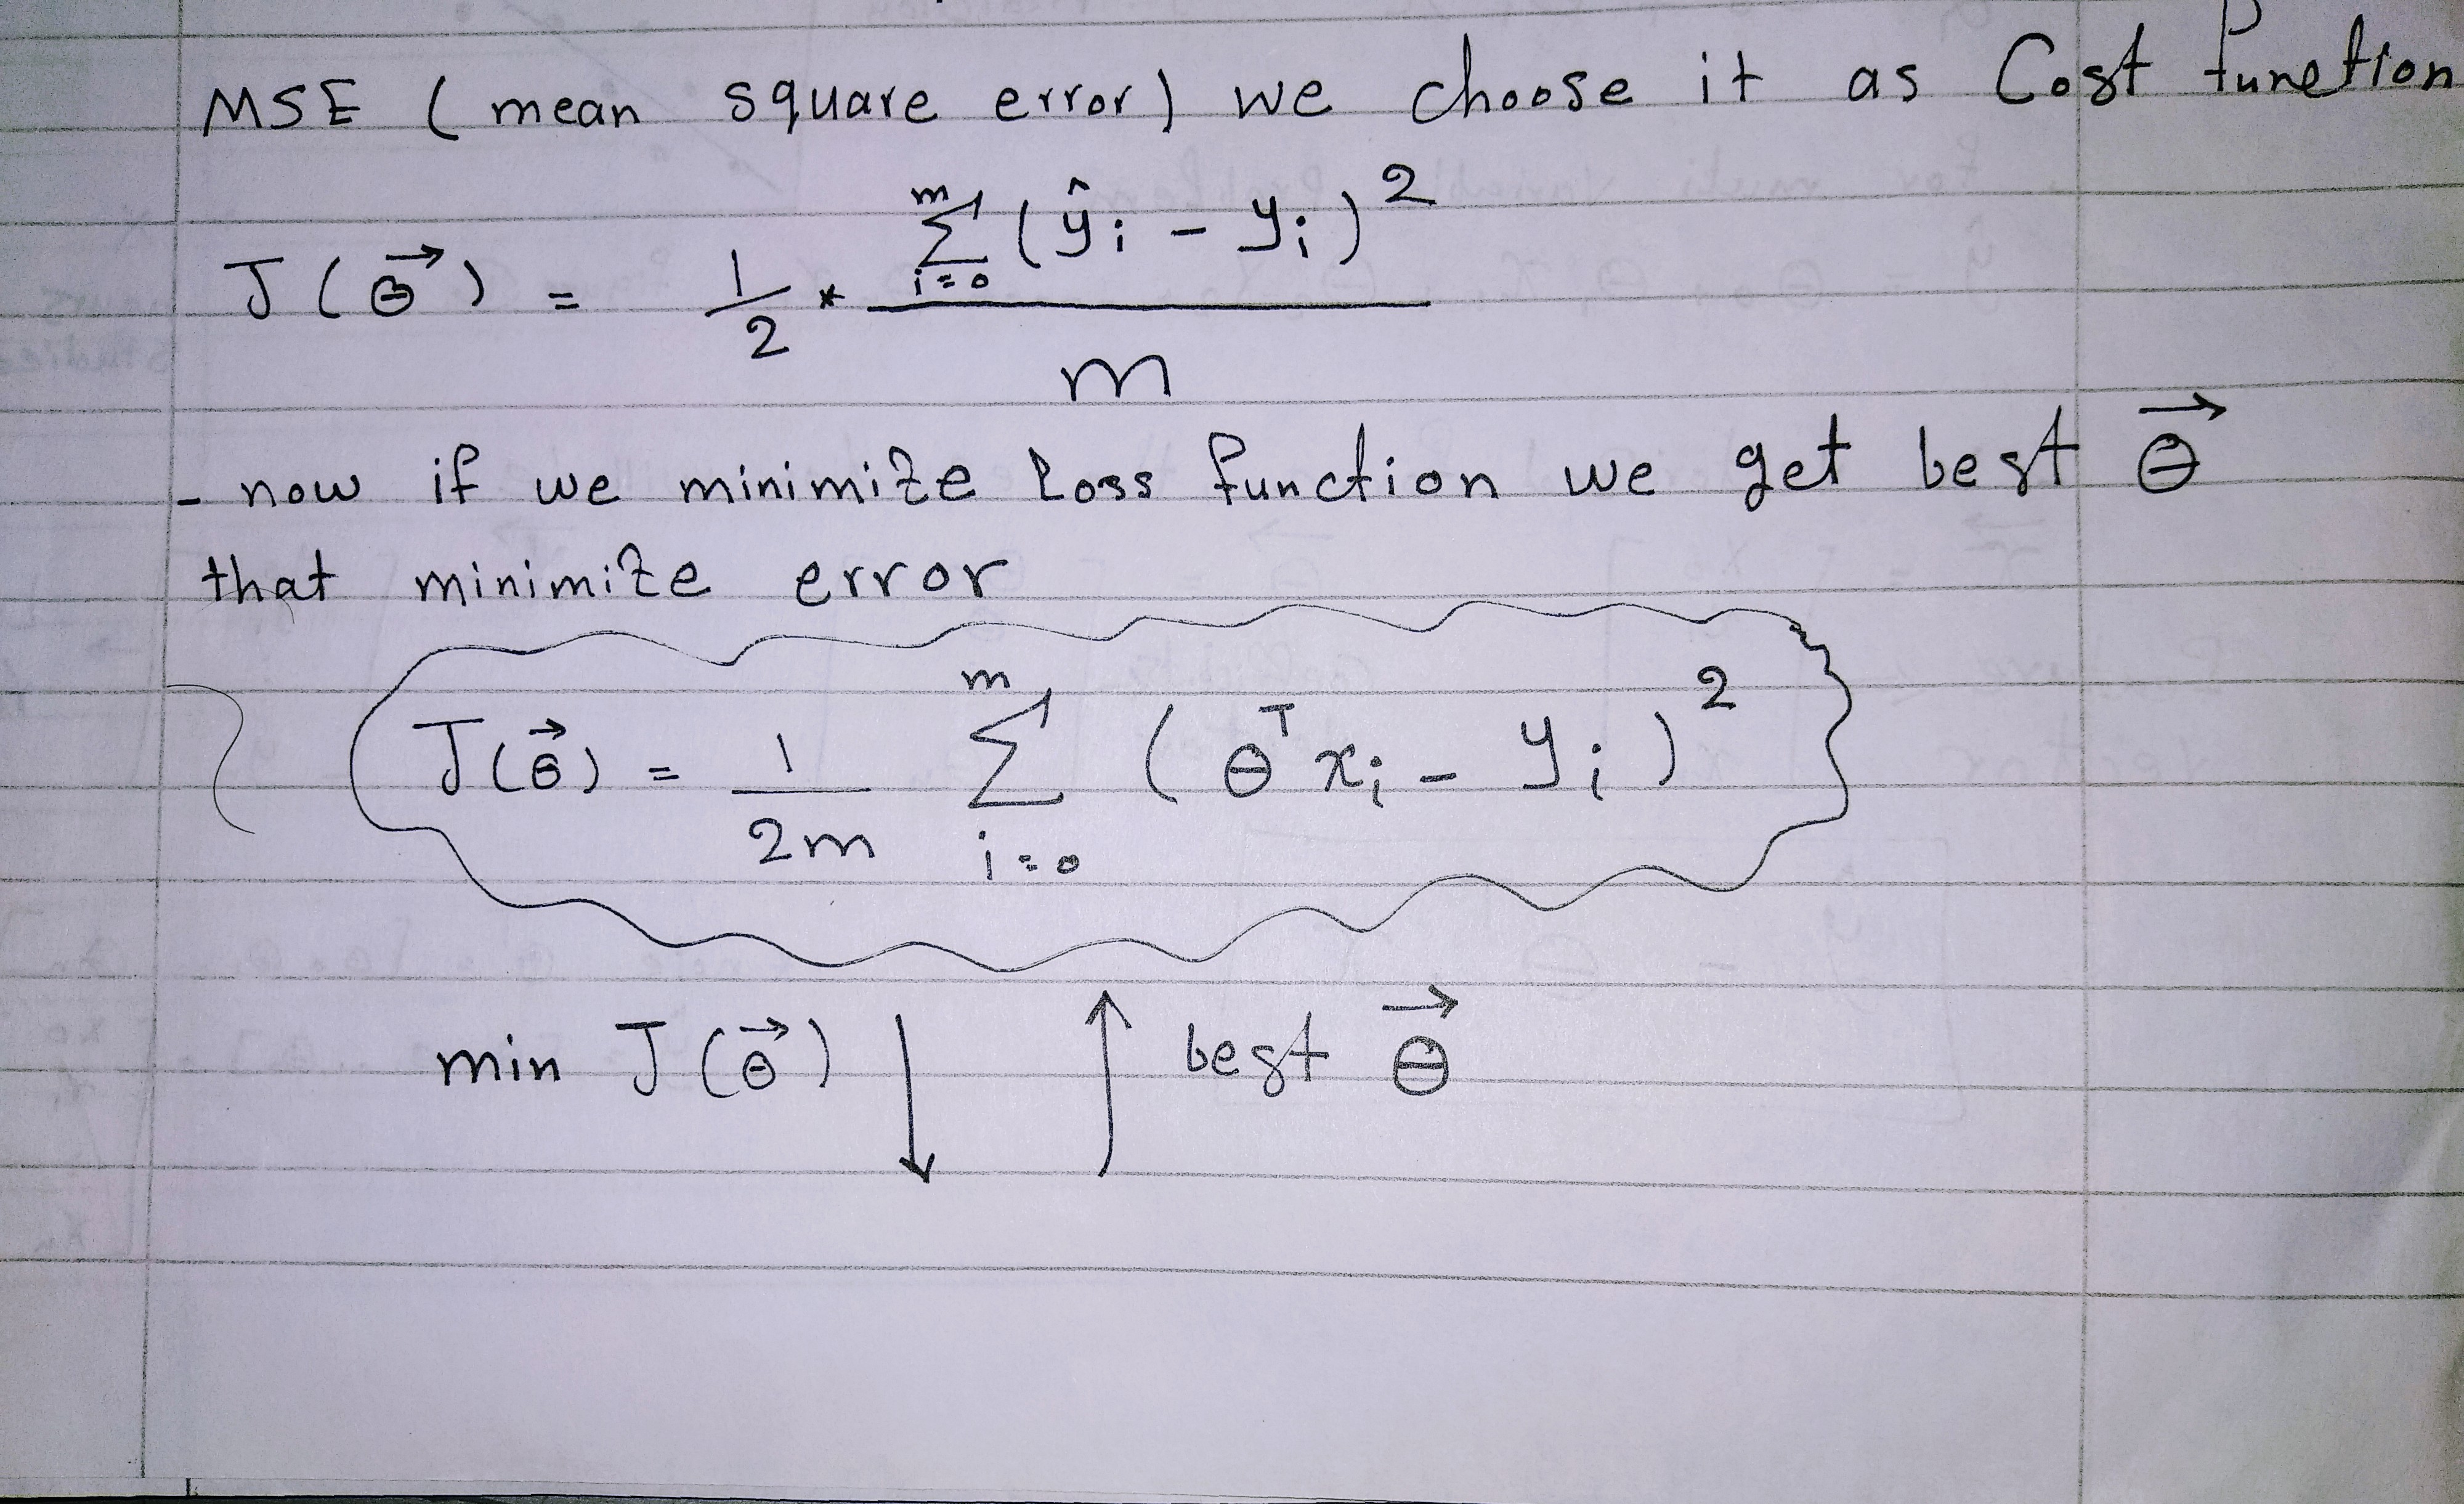 MSE ( mean square error) we choose it as Cost function
J(θ⃗) = 1/2 * (∑_{i=0}^{m} (ŷi - yi)²) / m
- now if we minimize loss function we get best θ⃗
that minimize error
J(θ⃗) = 1/2m ∑_{i=0}^{m} (θᵀxi - yi)²
min J(θ⃗) ↓ ↑ best θ⃗